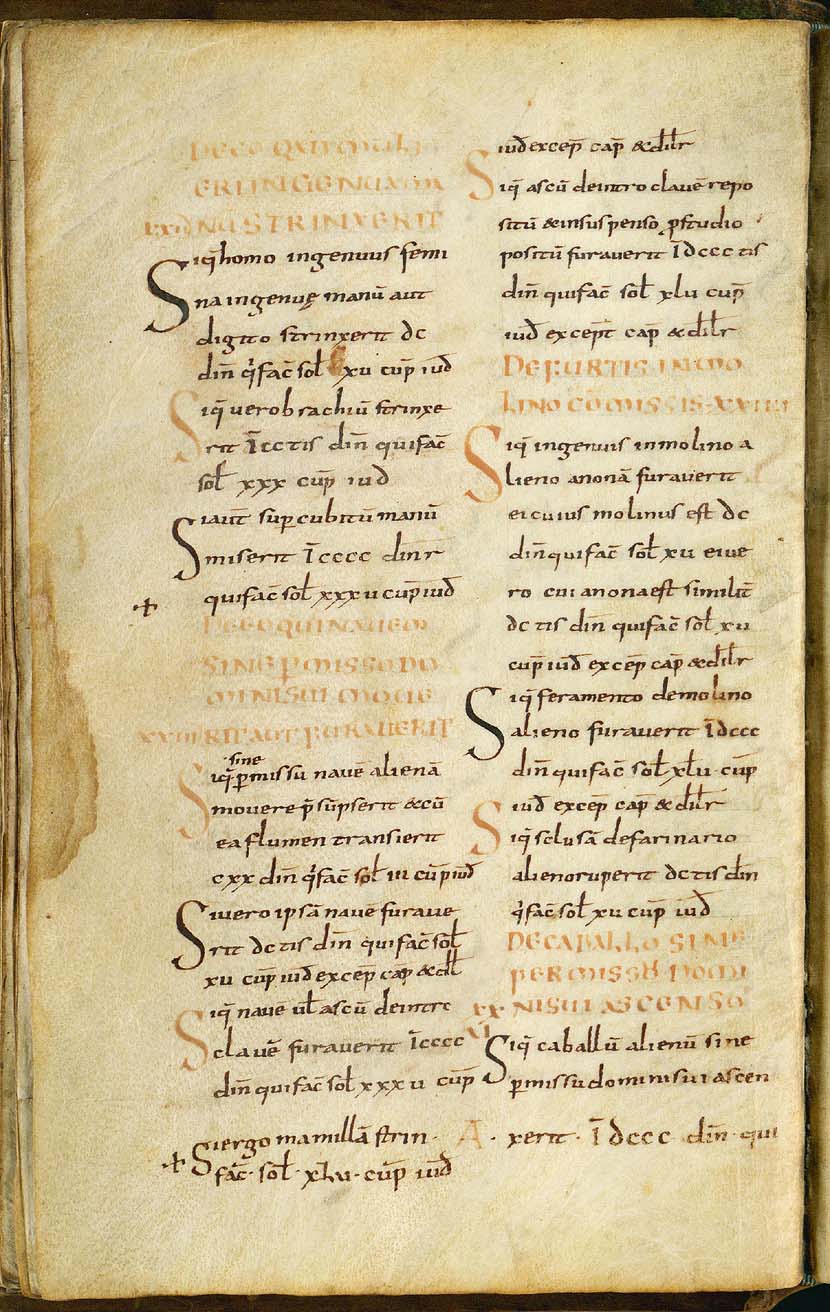 DE EO QUI MULI
ERI INGENUAE M
XXII NU STRINXERIT
iq̄ homo ingenuus femi
Sna ingenuę manū aut
digito strinxerit dc
din̄ q̍ fac̄ sol̄ xv cup̄ iud̄
Siq̄ vero brachiū strinxe
rit īcc tis din̄ qui fac̄
sol̄ xxx cup̄ iud
iaut̄ sup̄ cubitū manū
Smiserit īcccc din̄r
qui fac̄ sol̄ xxxv cup̄ iud̄
DE EO QUI NAUEM
SINE PMISSO DO
MINI SUI MOUE
XXIII RIT AUT FURAUERIT
sine
Siq̄ p̱missu navē alienā
movere p̄sūpserit &cū
ea flumen transierit
cxx din̄ q̍fac̄ sol̄ iii cup̄ iud̄
ivero ipsā navē furave
Srit dc tis din̄ qui fac̄ sol̄
xv cup̄ iud̄ excep̄ cap̄ &dil̄
Siq̄ navē vl̄ ascū deintro
clavē furaverit īcccc
din̄ qui fac̄ sol̄ xxxv cup̄
iud̄ excep̄ cap̄ &dil̄r
Siq̄ ascū deintro clavē repo
sitū &insuspenso p̱ studio
positū furaverit īdccc tis
din̄ qui fac̄ sol̄ xlv cup̄
iud̄ except̄ cap̄ &dil̄r
DE FURTIS IN MO
LINO COMISSIS XXIIII
Siq̄ ingenuus inmolino a
lieno anonā furaverit
ei cuius molinus est dc
din̄ qui fac̄ sol̄ xv ei ve
ro cui anona est similit̄
dc tis din̄ qui fac̄ sol̄ xv
cup̄ iud̄ excep̄ cap̄ &dil̄r
iq̄ feramento demolino
Salieno furaverit īdccc
din̄ qui fac̄ sol̄ xlv cup̄
iud̄ excep̄ cap̄ &dil̄r
Siq̄ sclusā defarinario
alieno ruperit dc tis din̄
q̍fac̄ sol̄ xv cup̄ iud̄
DE CABALLO SINE
PERMISSU DOMI
XX NI SUI ASCENSO
V
Siq̄ caballū alienū sine
p̱missu domini sui ascen
Siergo mamillā strin· A · xerit · īdccc din̄ · qui
fac̄ · sol̄ · xlv · cup̄ iud̄